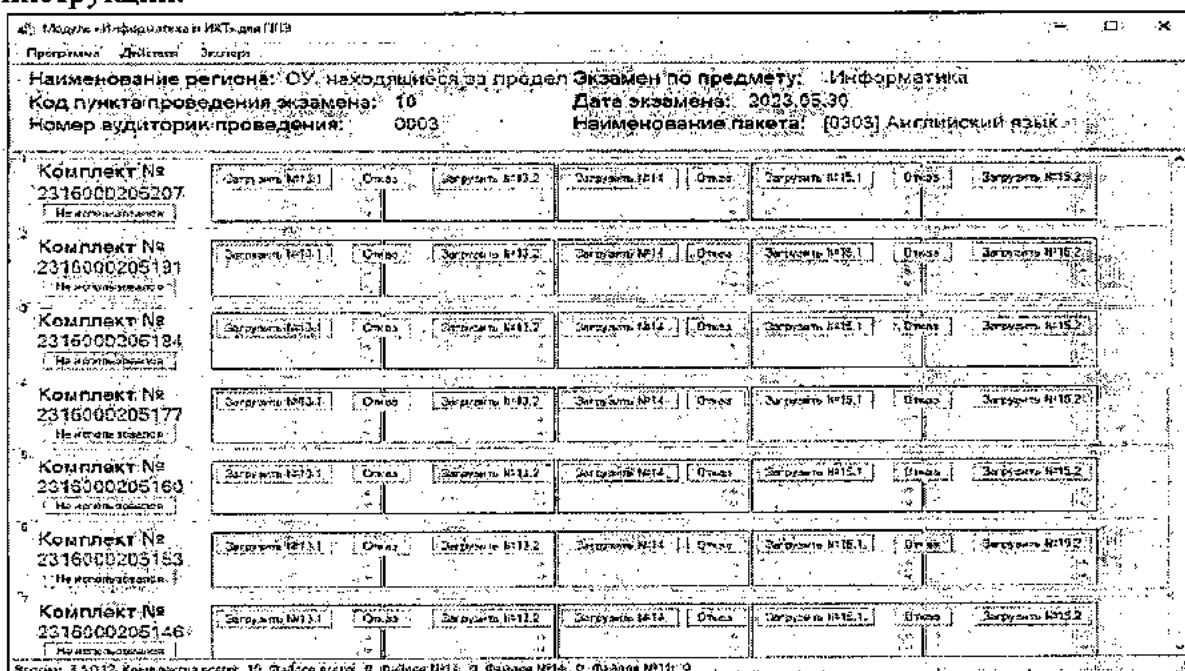 Модуль «Информатика и ИКТ» для ППЭ
Программа Действия Экспорт
Наименование региона: ОУ, находящиеся за предел Экзамен по предмету: Информатика
Код пункта проведения экзамена: 10 Дата экзамена: 2023.05.30
Номер аудитории проведения: 0003 Наименование пакета: [0303] Английский язык
1
Комплект №
2316000205207
Не использовался
Загрузить №13.1 Отказ Загрузить №13.2 Загрузить №14 Отказ Загрузить №15.1 Отказ Загрузить №15.2
2
Комплект №
2316000205191
Не использовался
Загрузить №13.1 Отказ Загрузить №13.2 Загрузить №14 Отказ Загрузить №15.1 Отказ Загрузить №15.2
3
Комплект №
2316000205184
Не использовался
Загрузить №13.1 Отказ Загрузить №13.2 Загрузить №14 Отказ Загрузить №15.1 Отказ Загрузить №15.2
4
Комплект №
2316000205177
Не использовался
Загрузить №13.1 Отказ Загрузить №13.2 Загрузить №14 Отказ Загрузить №15.1 Отказ Загрузить №15.2
5
Комплект №
2316000205160
Не использовался
Загрузить №13.1 Отказ Загрузить №13.2 Загрузить №14 Отказ Загрузить №15.1 Отказ Загрузить №15.2
6
Комплект №
2316000205153
Не использовался
Загрузить №13.1 Отказ Загрузить №13.2 Загрузить №14 Отказ Загрузить №15.1 Отказ Загрузить №15.2
7
Комплект №
2316000205146
Не использовался
Загрузить №13.1 Отказ Загрузить №13.2 Загрузить №14 Отказ Загрузить №15.1 Отказ Загрузить №15.2